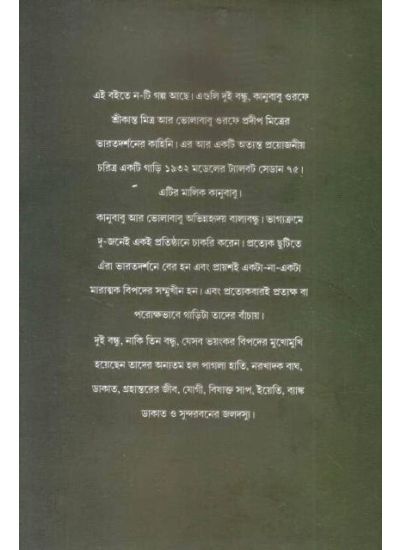 এই বইতে ন-টি গল্প আছে। এগুলি দুই বন্ধু, কানুবাবু ওরফে
শ্রীকান্ত মিত্র আর ভোলাবাবু ওরফে প্রদীপ মিত্রের
ভারতদর্শনের কাহিনি। এর আর একটি অত্যন্ত প্রয়োজনীয়
চরিত্র একটি গাড়ি ১৯৩২ মডেলের ট্যালবট সেডান ৭৫।
এটির মালিক কানুবাবু।
কানুবাবু আর ভোলাবাবু অভিন্নহৃদয় বাল্যবন্ধু। ভাগ্যক্রমে
দু-জনেই একই প্রতিষ্ঠানে চাকরি করেন। প্রত্যেক ছুটিতে
এঁরা ভারতদর্শনে বের হন এবং প্রায়শই একটা-না-একটা
মারাত্মক বিপদের সম্মুখীন হন। এবং প্রত্যেকবারই প্রত্যক্ষ বা
পরোক্ষভাবে গাড়িটা তাদের বাঁচায়।
দুই বন্ধু, নাকি তিন বন্ধু, যেসব ভয়ংকর বিপদের মুখোমুখি
হয়েছেন তাদের অন্যতম হল পাগলা হাতি, নরখাদক বাঘ,
ডাকাত, গ্রহান্তরের জীব, যোগী, বিষাক্ত সাপ, ইয়েতি, ব্যাঙ্ক
ডাকাত ও সুন্দরবনের জলদস্যু।